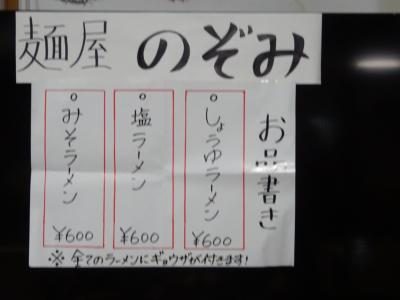 麺屋 のぞみ
お品書き
しょうゆラーメン
¥600
塩ラーメン
¥600
みそラーメン
¥600
※全てのラーメンにギョウザが付きます!